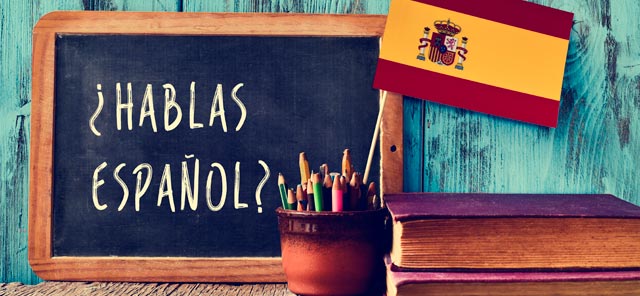 ¿HABLAS
ESPAÑOL?